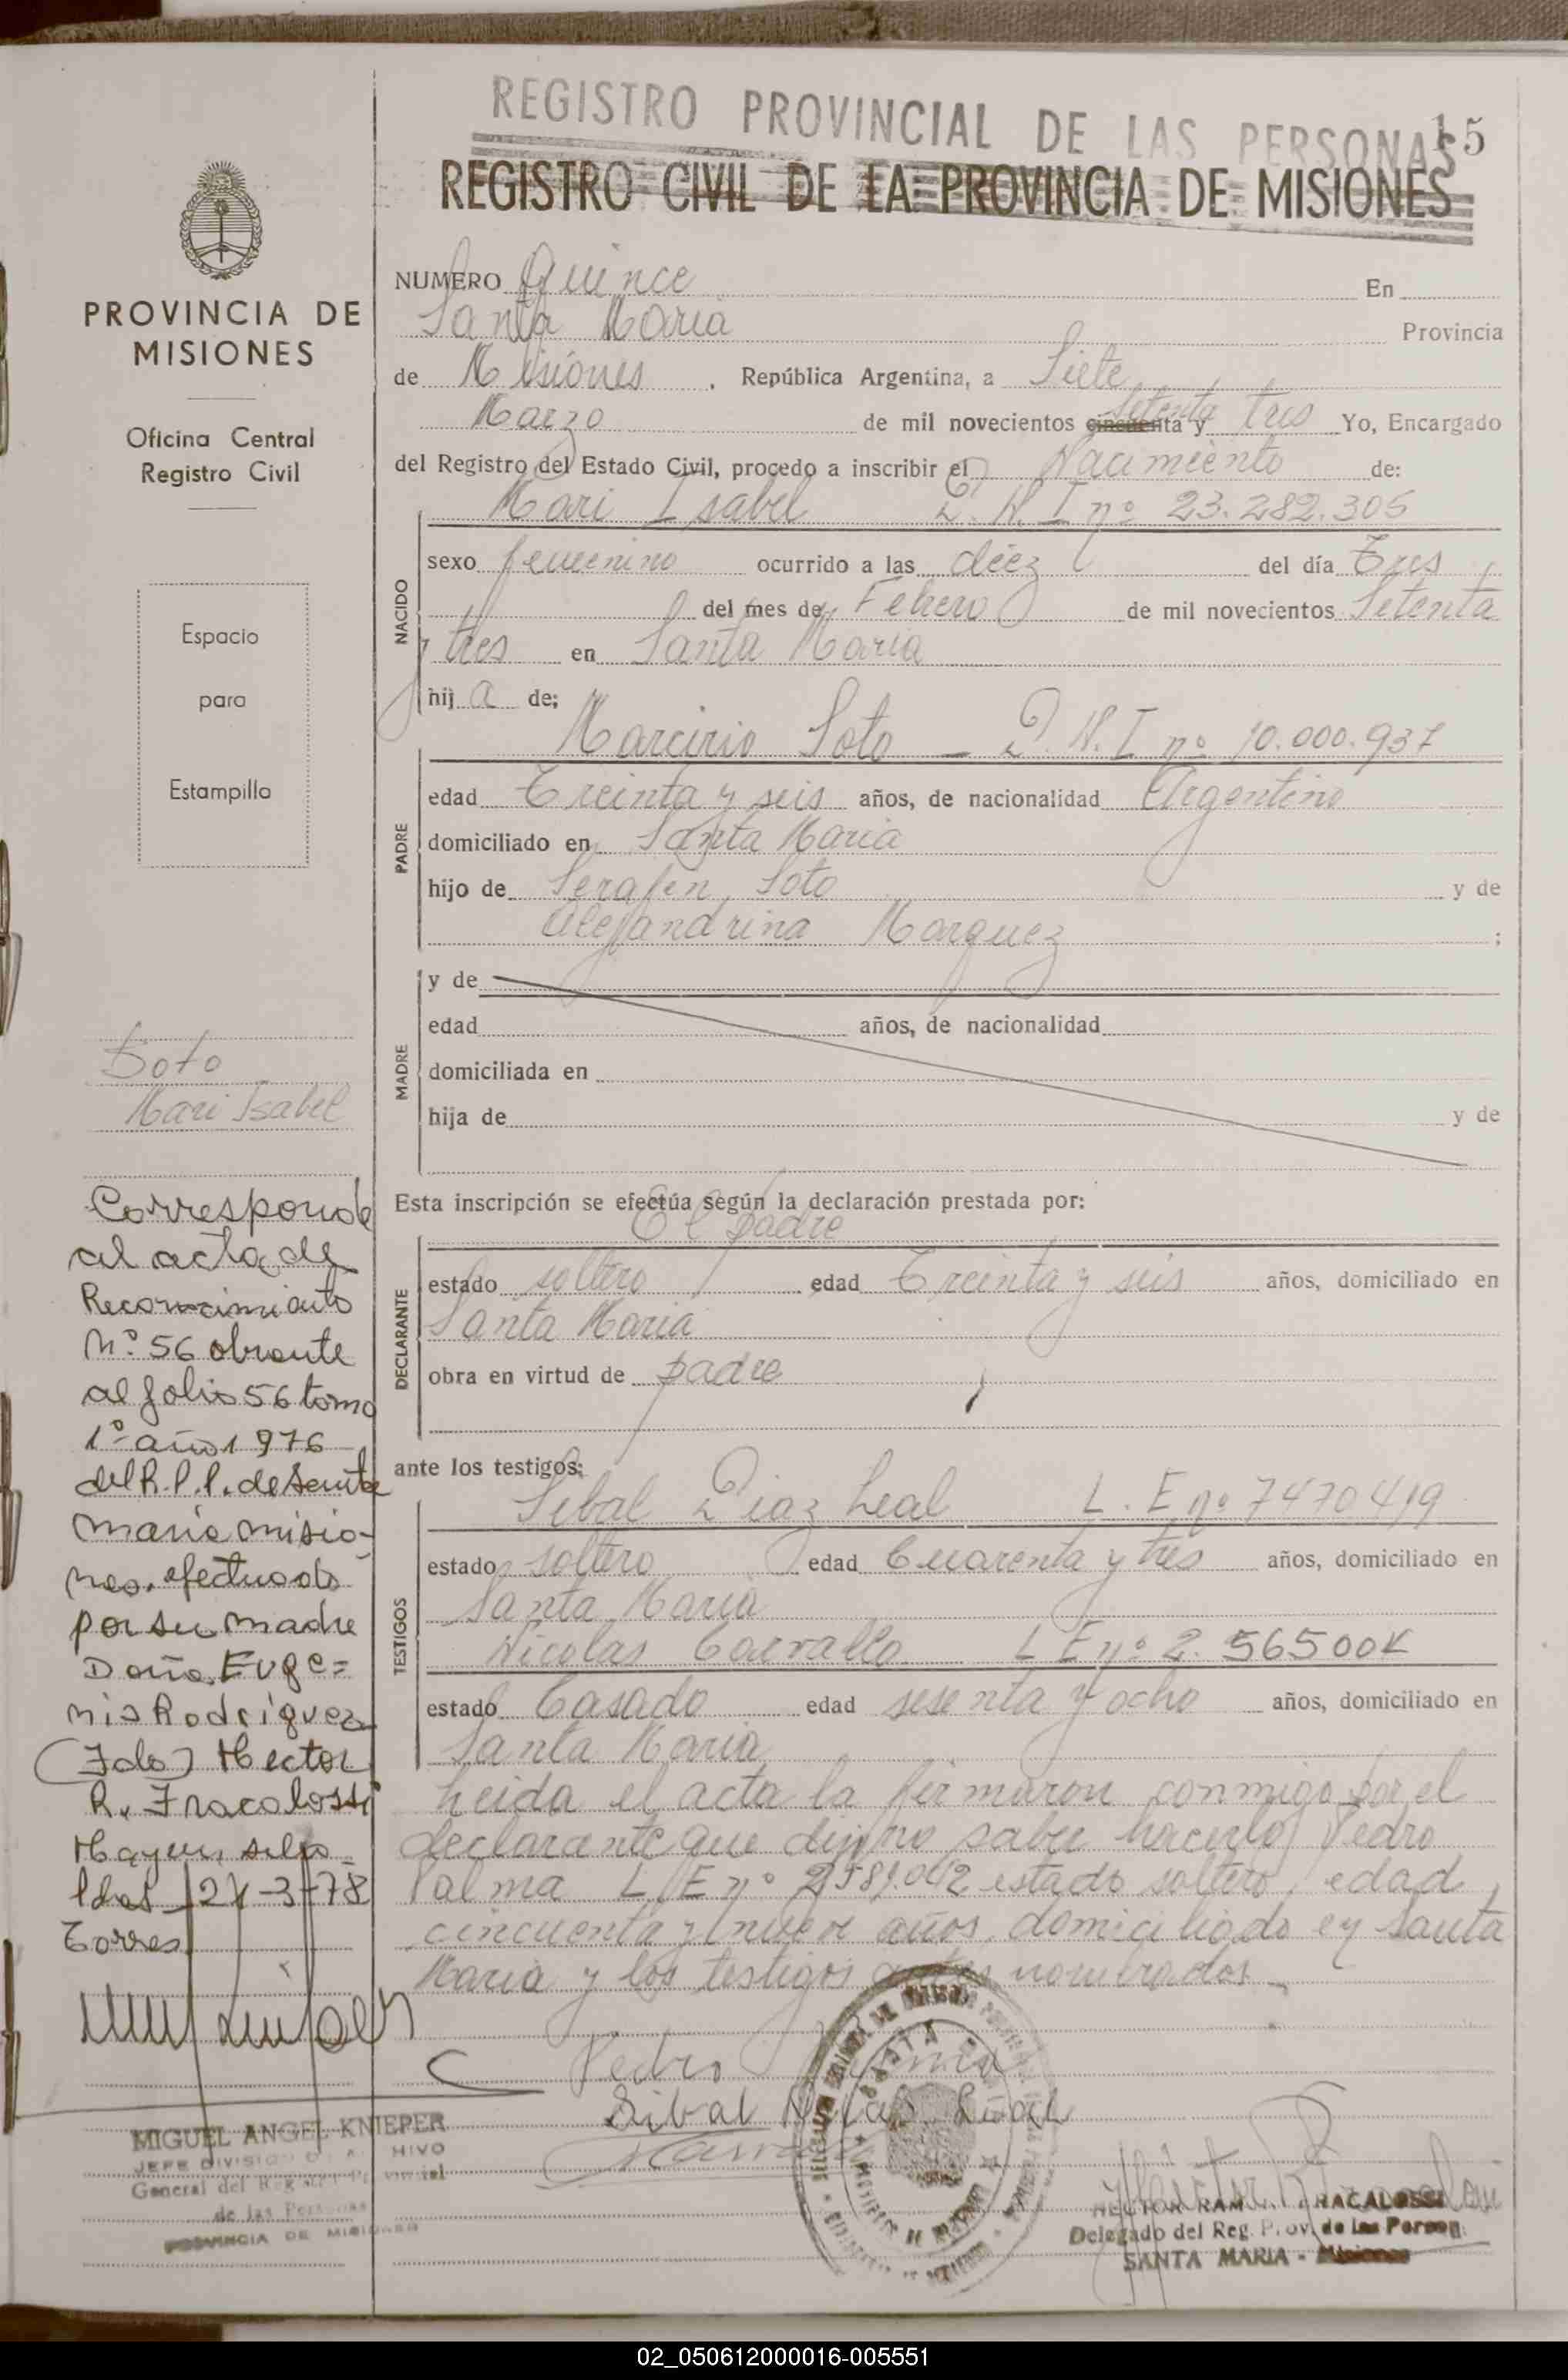 REGISTRO PROVINCIAL DE LAS PERSONAS
15
REGISTRO CIVIL DE LA PROVINCIA DE MISIONES
PROVINCIA DE
MISIONES
Oficina Central
Registro Civil
Espacio
para
Estampilla
Soto
Mari Isabel
Corresponde
al acta de
Reconocimiento
Nº 56 obrante
al folio 56 tomo
1º año 1976
del R.P.P. de Santa
Maria Misio-
nes, efectuado
por su madre
Doña Euge=
nia Rodríguez
(Fdo) Hector
R. Fracalossi
Hay un sello
Pdas 27-3-78
Torres
MIGUEL ANGEL KNIEPER
JEFE DIVISION ARCHIVO
General del Registro Provincial
de las Personas
PROVINCIA DE MISIONES
NUMERO Quince En
Santa Maria Provincia
de Misiones, República Argentina, a Siete
Marzo de mil novecientos cincuenta y Setenta tres Yo, Encargado
del Registro del Estado Civil, procedo a inscribir el Nacimiento de:
NACIDO
Mari Isabel D.N.I nº 23.282.305
sexo femenino ocurrido a las diez del día Tres
del mes de Febrero de mil novecientos Setenta
y tres en Santa Maria
hij a de;
PADRE
Marcirio Soto — D.N.I nº 10.000.937
edad Treinta y seis años, de nacionalidad Argentino
domiciliado en Santa Maria
hijo de Serafin Soto y de
Alejandrina Marquez ;
MADRE
y de
edad años, de nacionalidad
domiciliada en
hija de y de
Esta inscripción se efectúa según la declaración prestada por:
El padre
DECLARANTE
estado soltero edad Treinta y seis años, domiciliado en
Santa Maria
obra en virtud de padre
ante los testigos:
TESTIGOS
Sibal Diaz Leal L.E nº 7470419
estado soltero edad Cuarenta y tres años, domiciliado en
Santa Maria
Nicolas Carvallo L E nº 2.56500
estado Casado edad sesenta y ocho años, domiciliado en
Santa Maria
Leida el acta la firmaron conmigo por el
declarante que dijo no saber hacerlo Pedro
Palma L E nº estado soltero, edad
cincuenta y nueve años, domiciliado en Santa
Maria y los testigos antes nombrados
Pedro Palma
Sibal
HECTOR RAMON FRACALOSSI
Delegado del Reg. Prov. de las Person.
SANTA MARIA - Misiones
02_050612000016-005551